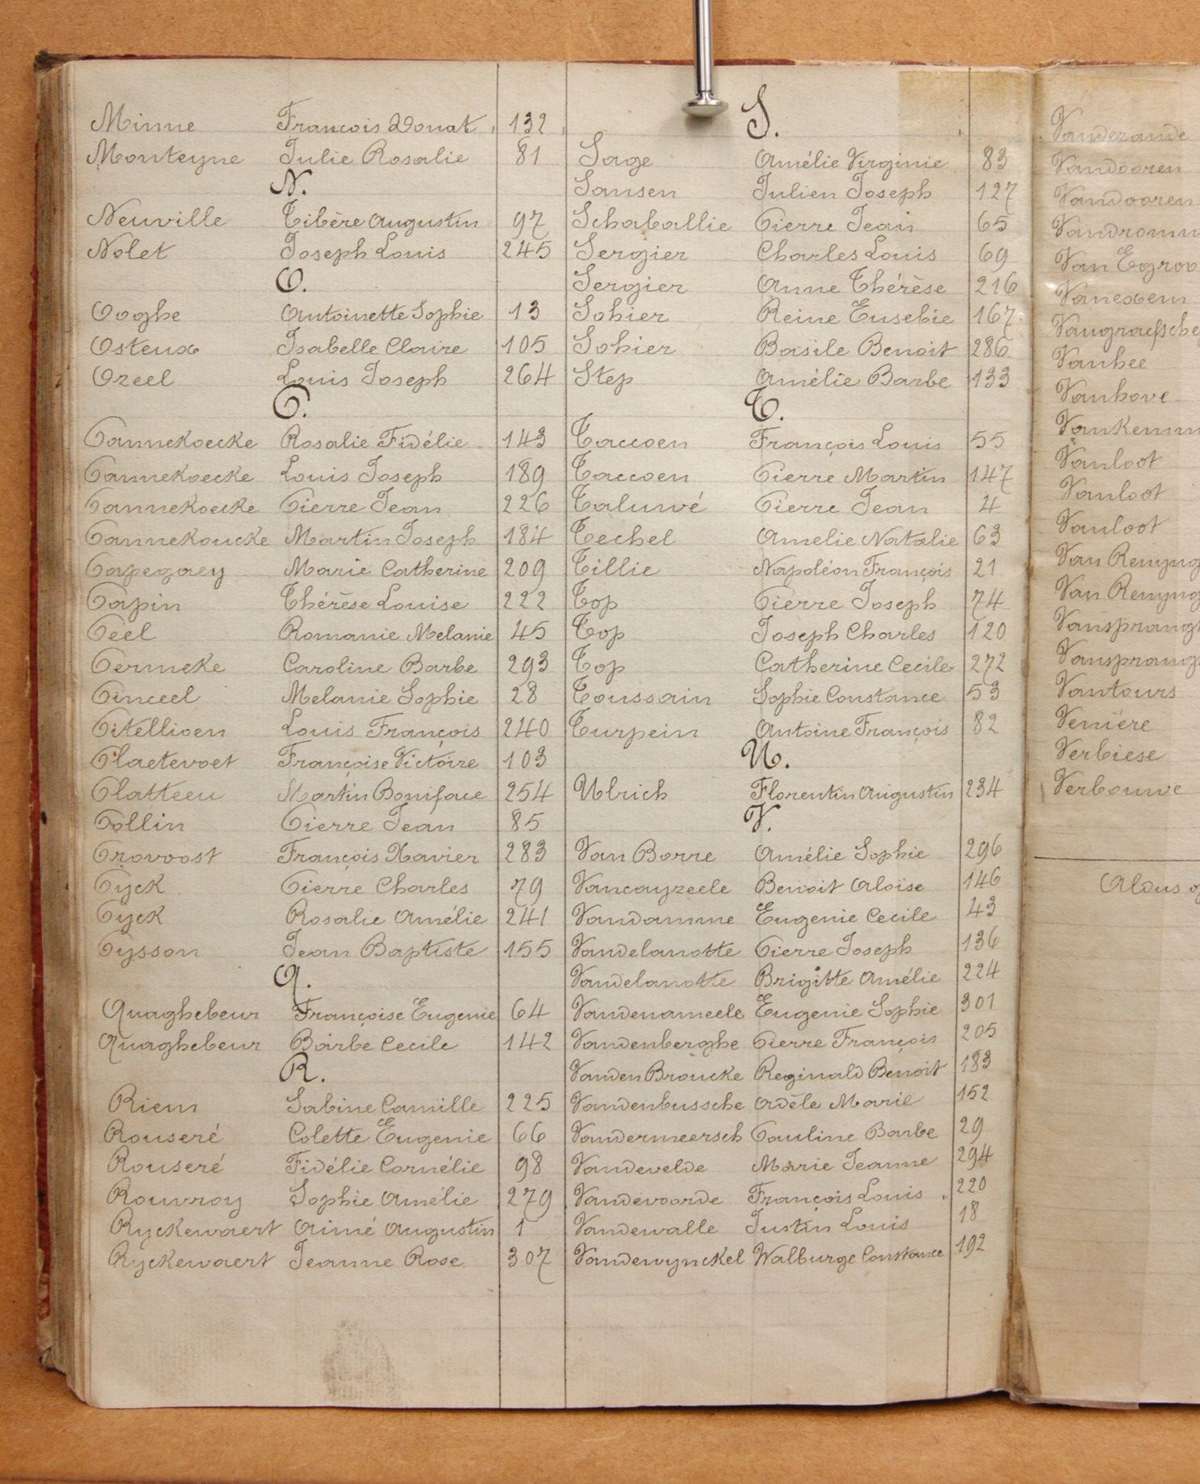 Minne François Donat 132
Monteyne Julie Rosalie 81
N.
Neuville Tibère Augustin 97
Nolet Joseph Louis 245
O.
Ooghe Antoinette Sophie 13
Osteux Isabelle Claire 105
Ozeel Louis Joseph 264
P.
Pannekoecke Rosalie Fidélie 143
Pannekoecke Louis Joseph 189
Pannekoecke Pierre Jean 226
Pannekoucke Martin Joseph 184
Papegaey Marie Catherine 209
Papin Thérèse Louise 222
Peel Romanie Melanie 45
Permeke Caroline Barbe 293
Pinceel Melanie Sophie 28
Pitellioen Louis François 240
Plaetevoet Françoise Victoire 103
Platteeu Martin Boniface 254
Pollin Pierre Jean 85
Provoost François Xavier 283
Pÿck Pierre Charles 79
Pyck Rosalie Amélie 241
Pysson Jean Baptiste 155
Q.
Quaghebeur Françoise Eugenie 64
Quaghebeur Barbe Cecile 142
R.
Riem Sabine Camille 225
Rouseré Colette Eugenie 66
Rouseré Fidélie Cornélie 98
Rouvroy Sophie Amélie 279
Ryckewaert Aimé Augustin 1
Ryckewaert Jeanne Rose 307
S.
Sage Amélie Virginie 83
Sansen Julien Joseph 127
Schaballie Pierre Jean 65
Sergier Charles Louis 69
Sergier Anne Thérèse 216
Sohier Reine Eusebie 167
Sohier Basile Benoit 286
Step Amélie Barbe 133
T.
Taccoen François Louis 55
Taccoen Pierre Martin 147
Taluwé Pierre Jean 4
Techel Amelie Natalie 63
Tillie Napoléon François 21
Top Pierre Joseph 74
Top Joseph Charles 120
Top Catherine Cecile 272
Toussain Sophie Constance 53
Turpein Antoine François 82
U.
Ulrich Florentin Augustin 234
V.
Van Borre Amélie Sophie 296
Vancayzeele Benoit Aloïse 146
Vandamme Eugenie Cecile 43
Vandelanotte Pierre Joseph 136
Vandelanotte Brigitte Amélie 224
Vandenameele Eugenie Sophie 301
Vandenberghe Pierre François 205
Vanden Broucke Reginald Benoit 183
Vandenbussche Adèle Marie 152
Vandermeersch Pauline Barbe 29
Vandevelde Marie Jeanne 294
Vandevoorde François Louis 220
Vandewalle Justin Louis 18
Vandewynckel Walburge Constance 192
Vanderande
Vandooren
Vandooren
Vandromm
Van Egroo
Vanexem
Vangraefsche
Vanhee
Vanhove
Vankemm
Vanloot
Vanloot
Vanloot
Van Remyng
Van Remyng
Vansprangh
Vansprangh
Vantours
Venière
Verbiese
Verbouwe
Aldus o